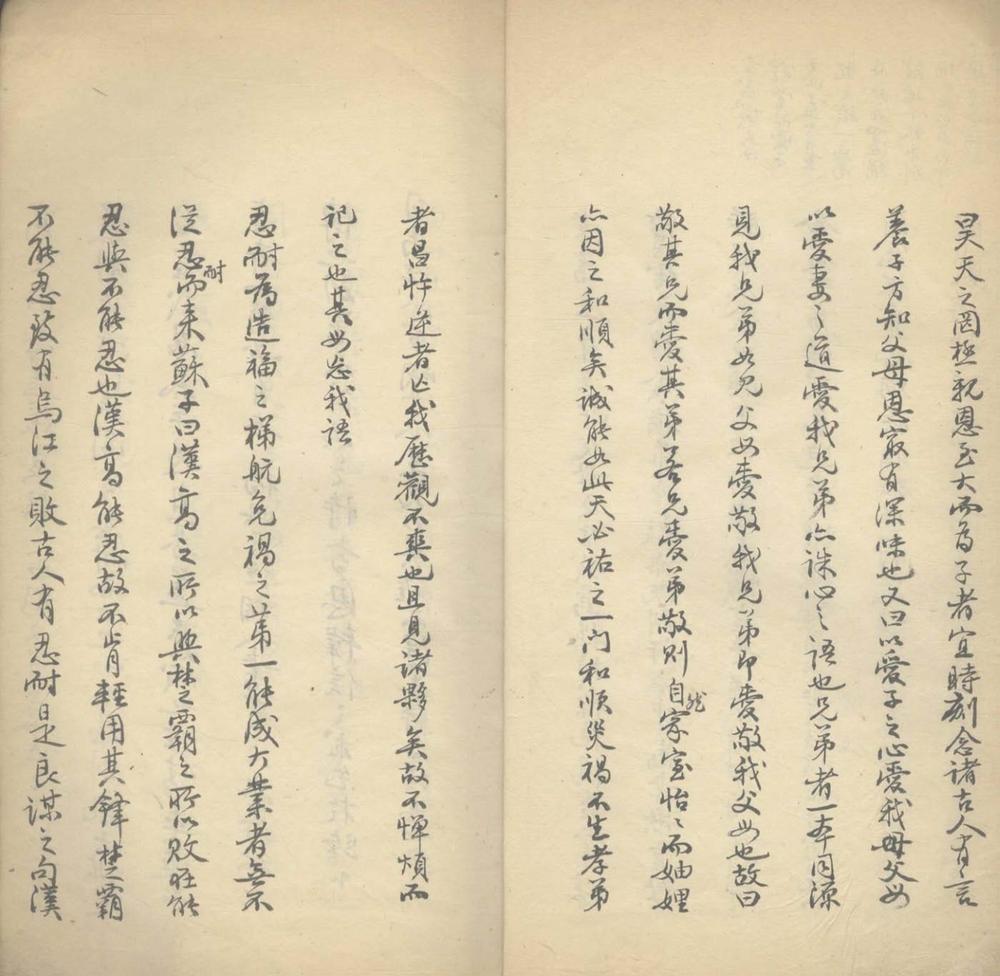 昊天之罔極親恩至大而為子者宜時刻念諸古人有言
養子方知父母恩最有深味也又曰以愛子之心愛我母父如
以愛妻之道愛我兄弟亦誅心之語也兄弟者一本同源
見我兄弟如見父母愛敬我兄弟即愛敬我父母也故曰
敬其兄而愛其弟若兄愛弟敬則自然家室怡〻而妯娌
亦因之和順矣誠能如此天必祐之一門和順災禍不生孝弟
者昌忤逆者亡我歷觀不爽也且見諸夥矣故不憚煩而
記之也其毋忘我語
忍耐為造福之梯航免禍之第一能成大業者無不
從忍耐而來蘇子曰漢高之所以興楚霸之所以敗在能
忍與不能忍也漢高能忍故不肯輕用其鋒楚霸
不能忍致有烏江之敗古人有忍耐是良謀之句漢